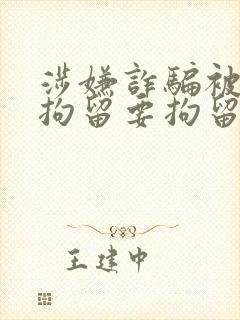 涉嫌詐騙被
拘留要拘留
王建中